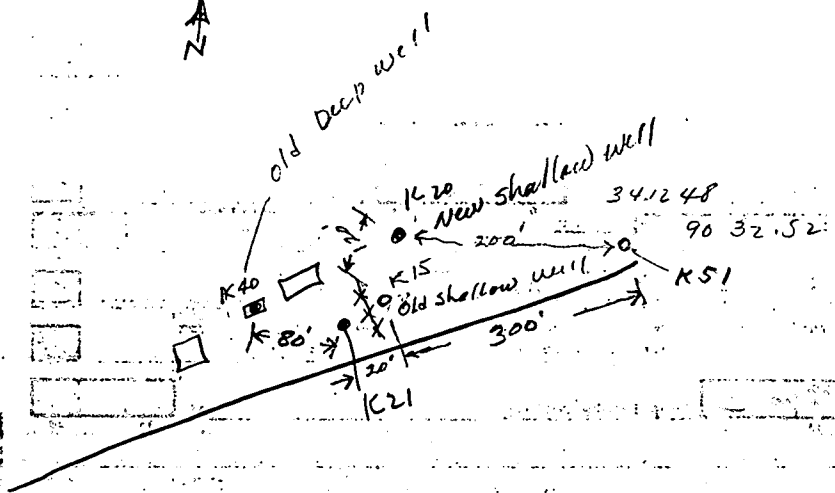 N
old Deep well
K20
New shallow well
341248
90 32.52
200'
K40
K15
old shallow well
K51
80'
300'
20'
K21